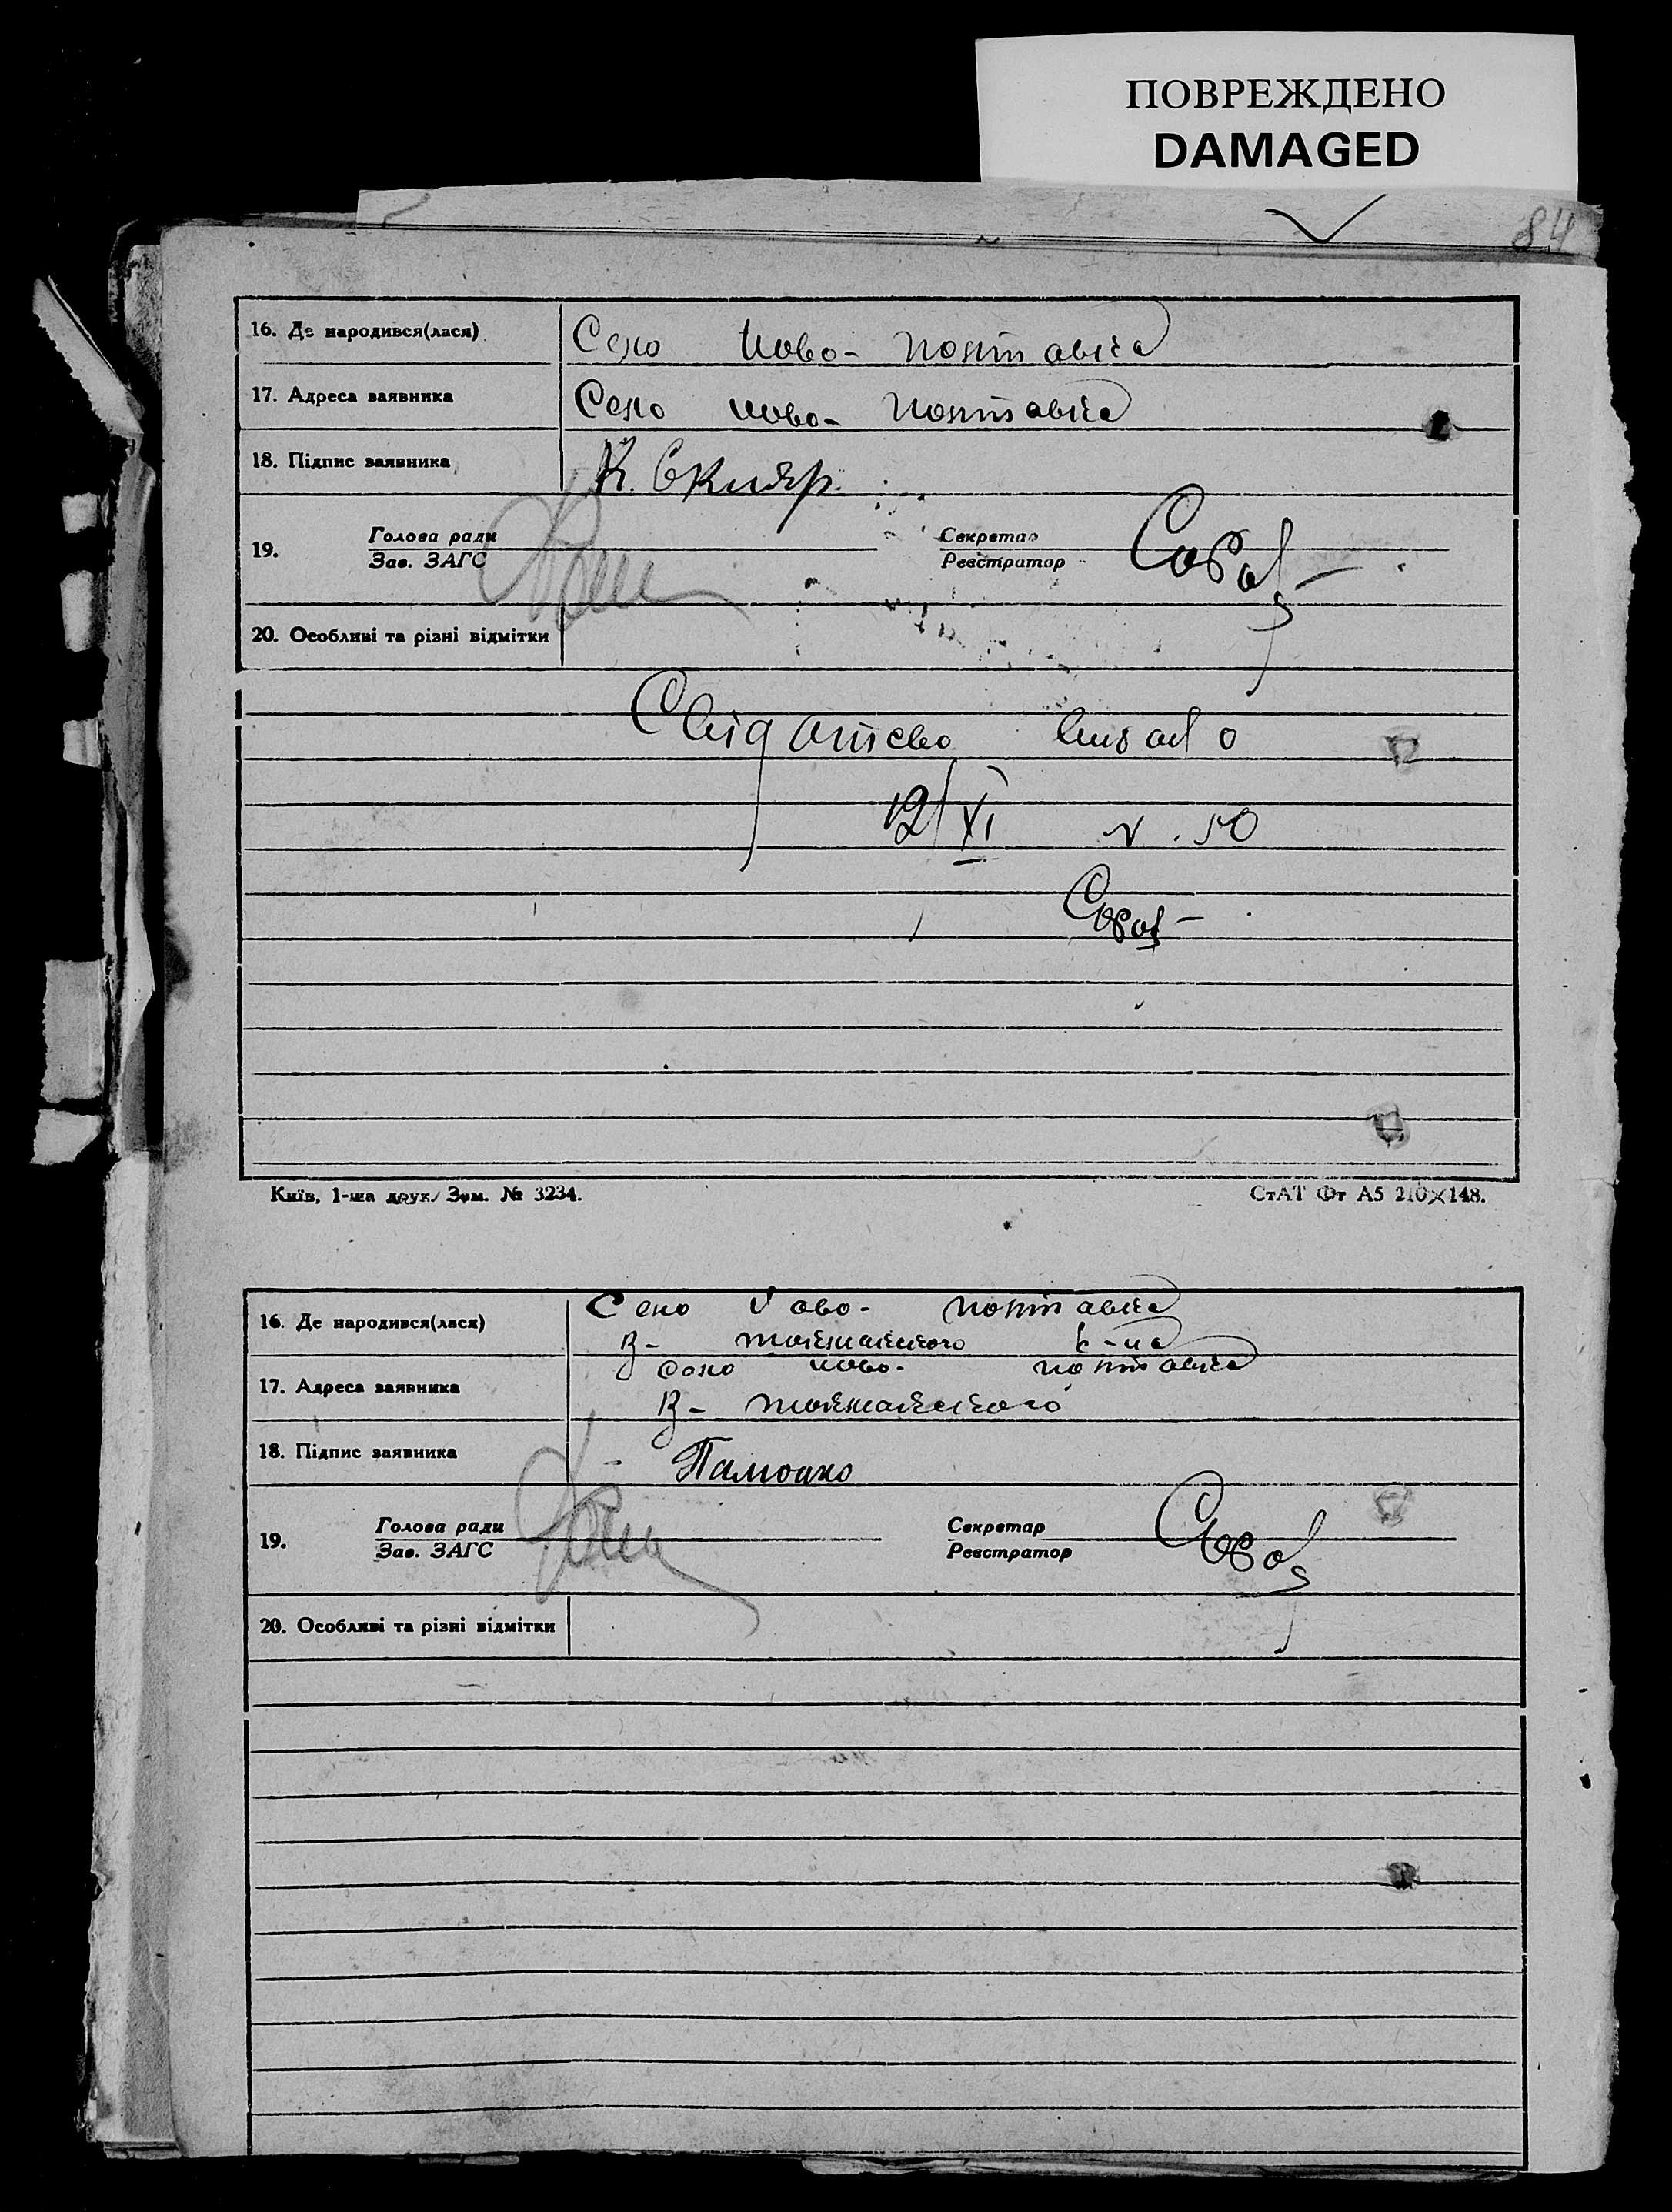 ПОВРЕЖДЕНО
DAMAGED
84
16. Де народився(лася) Село Ново- Полтавка
17. Адреса заявника Село Ново- Полтавка
18. Підпис заявника К. Скляр.
19. Голова ради Секретар
Зав. ЗАГС Реєстратор
20. Особливі та різні відмітки
Свідотство видано
12/XI N. 50
Київ, 1-ша друк. Зам. № 3234. СтАТ Фт А5 210×148.
16. Де народився(лася) Село Ново- Полтавка
В- Токмакского р-на
17. Адреса заявника Село Ново- Полтавка
В- Токмакского
18. Підпис заявника
19. Голова ради Секретар
Зав. ЗАГС Реєстратор
20. Особливі та різні відмітки